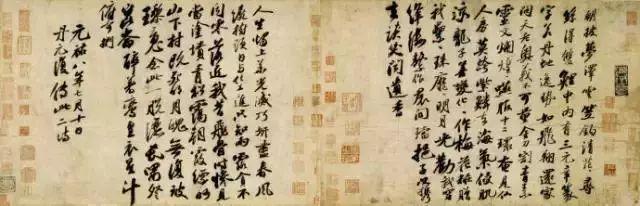 朝披夢澤雲笠釣青茫茫尋
絲得雙鯉中有三元章篆
字若丹蛇逸勢如飛翔還家
問天老奧義不可量金刀割青素
靈文爛煌煌嚥服十二環奄見仙
人房莫跨紫鱗去海氣侵肌
涼龍子善變化化作梅花妝贈
我纍纍珠靡靡明月光勸我穿
絳縷繫作裙間襠挹子以攜
去談笑聞遺香
人生燭上華光滅巧妍盡春風
繞樹頭日與化工進只知雨露貪不
聞零落近我昔飛骨時慘見
當塗墳青松靄朝霞縹緲
山下村既死明月魄無復玻
璃魂念此一脫灑長嘯祭
崑崙醉著鸞皇衣星斗
俯可捫
元祐八年七月十日
丹元復傳此二詩